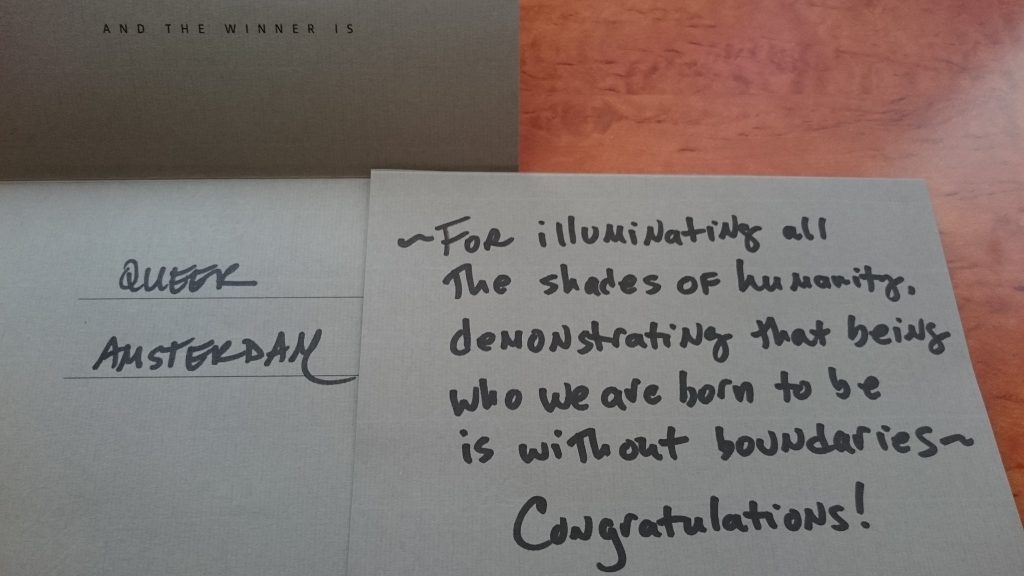 AND THE WINNER IS
QUEER
AMSTERDAM
~FOR illuminating all
The shades of humanity,
demonstrating that being
who we are born to be
is without boundaries~
Congratulations!